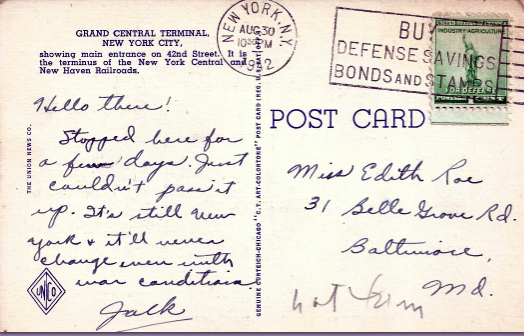 GRAND CENTRAL TERMINAL,
NEW YORK CITY,
showing main entrance on 42nd Street. It is
the terminus of the New York Central and
New Haven Railroads.
NEW YORK, N.Y.
AUG 30
1942
BUY
DEFENSE SAVINGS
BONDS AND STAMPS
INDUSTRY AGRICULTURE
FOR DEFENSE
POST CARD
Hello there!
Stopped here for
a few days. Just
couldn't pass it
up. It's still New
York & it'll never
change even with
war conditions.
Jack
Miss Edith Roe
31 Belle Grove Rd.
Baltimore,
Md.
not
THE UNION NEWS CO.
UNCO
GENUINE CURTEICH-CHICAGO "C.T. ART-COLORTONE" POST CARD (REG. U.S. PAT. OFF.)